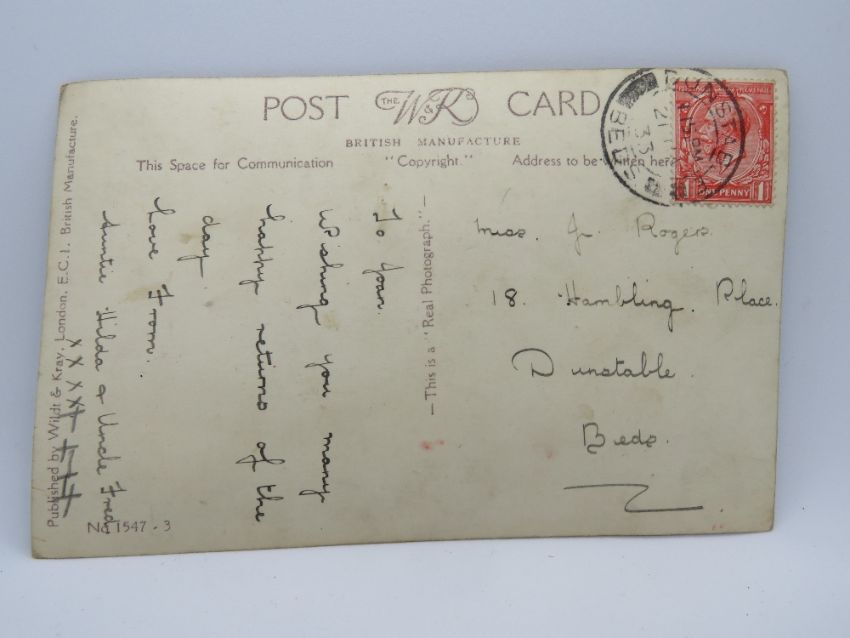 POST THE W&K CARD
BRITISH MANUFACTURE
This Space for Communication "Copyright." Address to be written here
DUNSTABLE
BEDS
33
ONE PENNY
1 1
Miss. J. Rogers.
18. Hambling. Place.
Dunstable.
Beds.
To Joan.
Wishing you many
happy returns of the
day.
Love From.
Auntie Hilda & Uncle Fred
x x x x x
— This is a "Real Photograph." —
Published by Wildt & Kray, London, E.C.1. British Manufacture.
No 1547 - 3